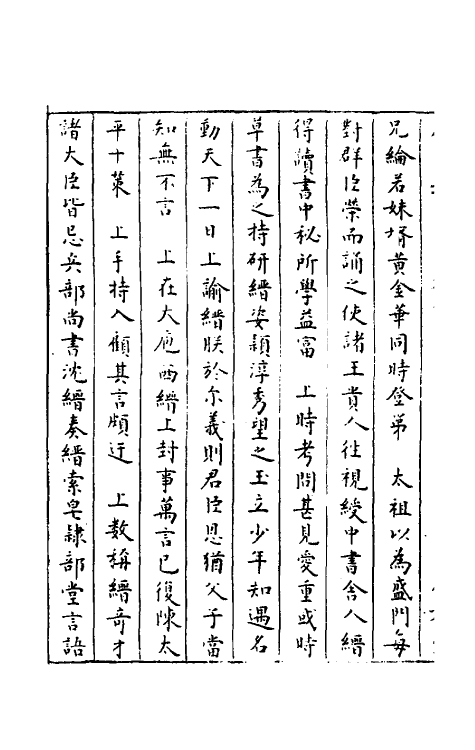 兄綸若妹壻黃金華同時登第　太祖以為盛門每
對群臣榮而誦之使諸王貴人徃視綬中書舍人縉
得讀書中秘所學益富　上時考問甚見愛重或時
草書為之持研縉姿穎淳秀望之玉立少年知遇名
動天下一日上諭縉朕於尔義則君臣恩猶父子當
知無不言　上在大庖西縉上封事萬言已復陳太
平十策　上手持入頗其言頗迂　上數稱縉奇才
諸大臣皆忌兵部尚書沈縉奏縉索皂隸部堂言語